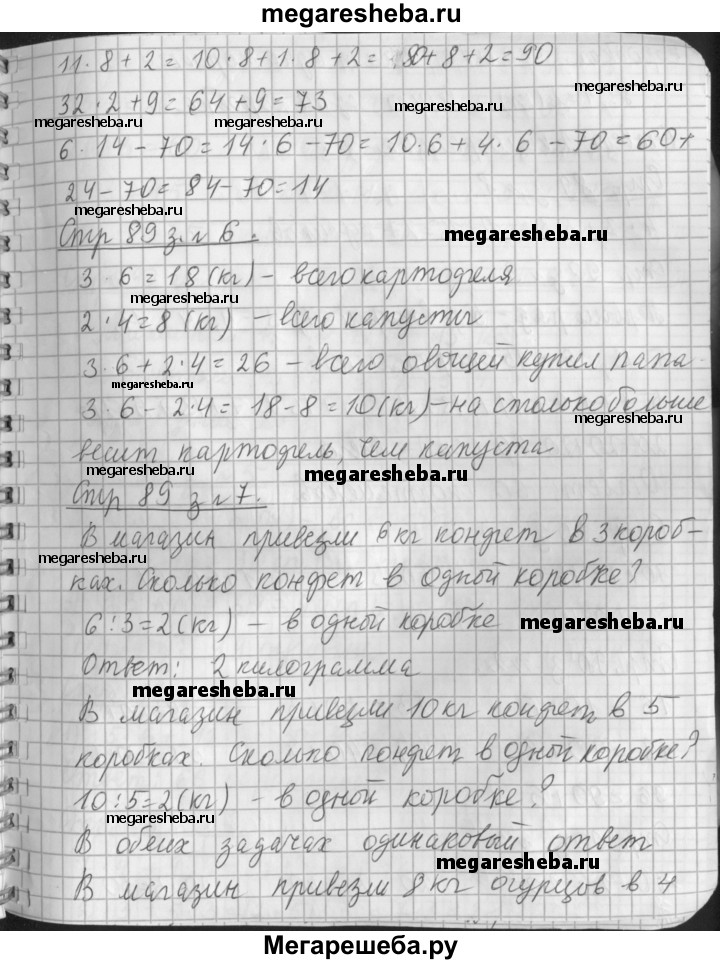 megaresheba.ru
11·8+2=10·8+1·8+2=80+8+2=90
megaresheba.ru
32·2+9=64+9=73
megaresheba.ru megaresheba.ru megaresheba.ru
6·14-70=14·6-70=10·6+4·6-70=60+
24-70=84-70=14
megaresheba.ru
Стр 89 з.№6.
megaresheba.ru
3·6=18(кг)- всего картофеля
megaresheba.ru
2·4=8(кг) - всего капусты
megaresheba.ru
3·6+2·4=26 - всего овощей купил папа
megaresheba.ru
3·6-2·4=18-8=10(кг)-на столько больше
megaresheba.ru
весит картофель, чем капуста
megaresheba.ru megaresheba.ru
Стр 89 з №7.
В магазин привезли 6 кг конфет в 3 короб-
megaresheba.ru megaresheba.ru
ках. Сколько конфет в одной коробке?
6:3=2(кг) - в одной коробке
megaresheba.ru
Ответ: 2 килограмма
megaresheba.ru
В магазин привезли 10 кг конфет в 5
коробках. Сколько конфет в одной коробке?
10:5=2(кг) - в одной коробке?
megaresheba.ru megaresheba.ru
В обеих задачах одинаковый ответ
megaresheba.ru
В магазин привезли 8 кг огурцов в 4
Мегарешеба.ру